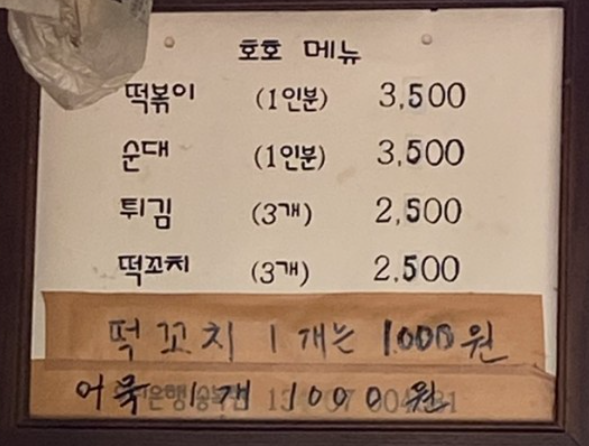 호호 메뉴
떡볶이 (1인분) 3,500
순대 (1인분) 3,500
튀김 (3개) 2,500
떡꼬치 (3개) 2,500
떡꼬치 1개는 1.000원
어묵 1개 1000원